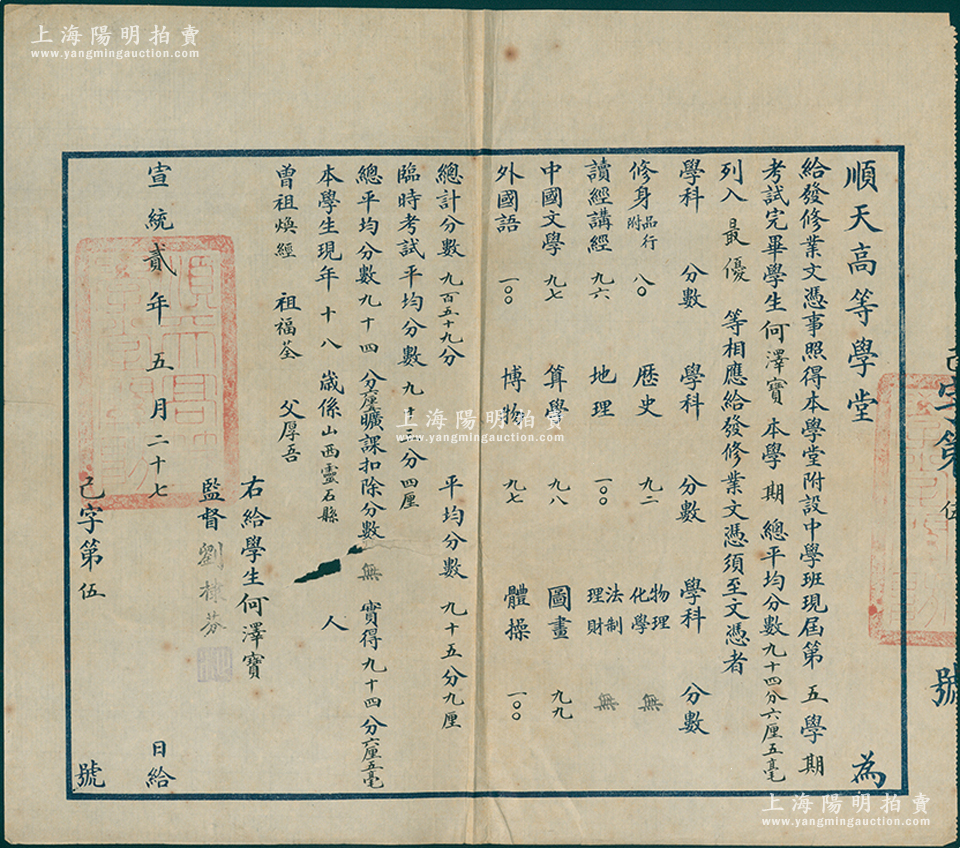 上海陽明拍賣
www.yangmingauction.com
順天高等學堂 為
給發修業文憑事照得本學堂附設中學班現屆第 五 學期
考試完畢學生何澤寶本學期總平均分數九十四分六厘五毫
列入 最優 等相應給發修業文憑須至文憑者
學科 分數 學科 分數 學科 分數
修身附品行 八〇 歷史 九二 物理化學 無
讀經講經 九六 地理 一〇〇 法制理財 無
中國文學 九七 算學 九八 圖畫 九九
外國語 一〇〇 博物 九七 體操 一〇〇
總計分數 九百五十九分 平均分數 九十五分九厘
臨時考試平均分數 九十三分四厘
總平均分數九十四 分六厘五毫曠課扣除分數 無 實得九十四分六厘五毫
本學生現年 十八 歲係山西靈石縣 人
曾祖煥經 祖福荃 父厚吾
右給學生何澤寶
監督劉棣芬
宣統貳年五月二十七 日給
己字第 伍 號
己字第 伍 號
上海陽明拍賣
www.yangmingauction.com
上海陽明拍賣
www.yangmingauction.com